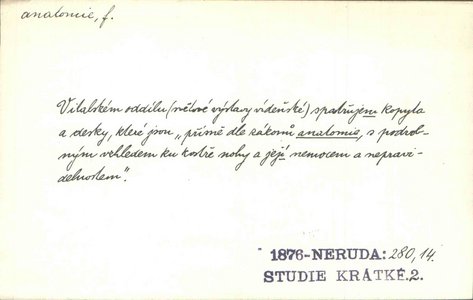 anatomie, f.
V italském oddílu (světové výstavy vídeňské) spatřujem kopyta
a desky, které jsou „přímě dle zákonů anatomie, s podrob-
ným vzhledem ku kostře nohy a její nemocem a nepravi-
delnostem".
1876-NERUDA: 280, 14.
STUDIE KRÁTKÉ.2.